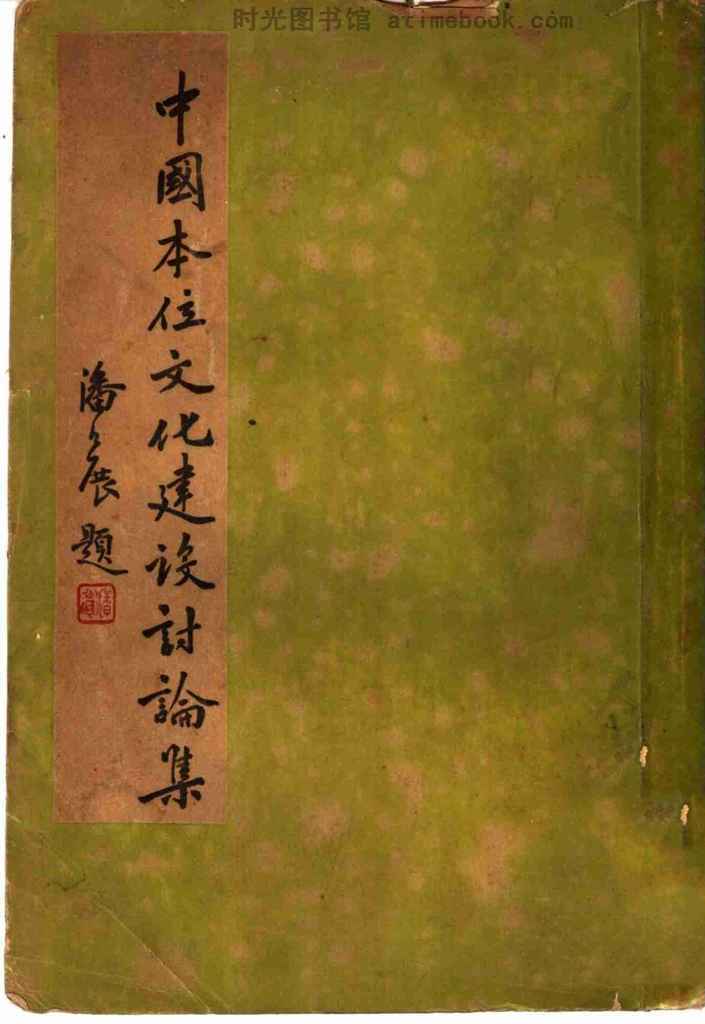 时光图书馆 atimebook.com
中國本位文化建設討論集
潘公展題